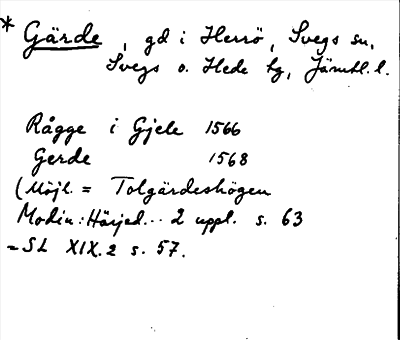 * Gärde, gd i Herrö, Svegs sn,
Svegs o. Hede tg, Jämtl. l.
Rågge i Gjele 1566
Gerde 1568
(Möjl. = Tolgärdeshögen
Modin: Härjed... 2 uppl. s. 63
= SL XIX.2 s. 57.